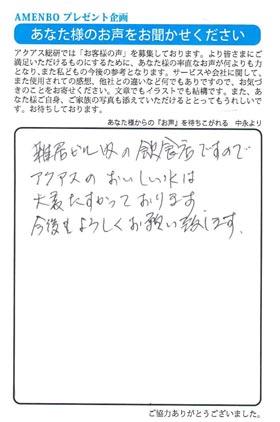 AMENBO プレゼント企画
あなた様のお声をお聞かせください
アクアス総研では「お客様の声」を募集しております。より皆さまにご
満足いただけるものにするために、あなた様の率直なお声が何よりも力
となり、また私どもの今後の参考となります。サービスや会社に関して、
また使用されての感想、他社との違いなど何でもありですので、お気づ
きのことをお寄せください。文章でもイラストでも結構です。また、あ
なた様ご自身、ご家族の写真も添えていただけるととってもうれしいで
す。お待ちしております。
あなた様からの『お声』を待ちこがれる 中永より
雑居ビル内の飲食店ですので
アクアスのおいしい水は
大変たすかっております
今後もよろしくお願い致します。
ご協力ありがとうございました。